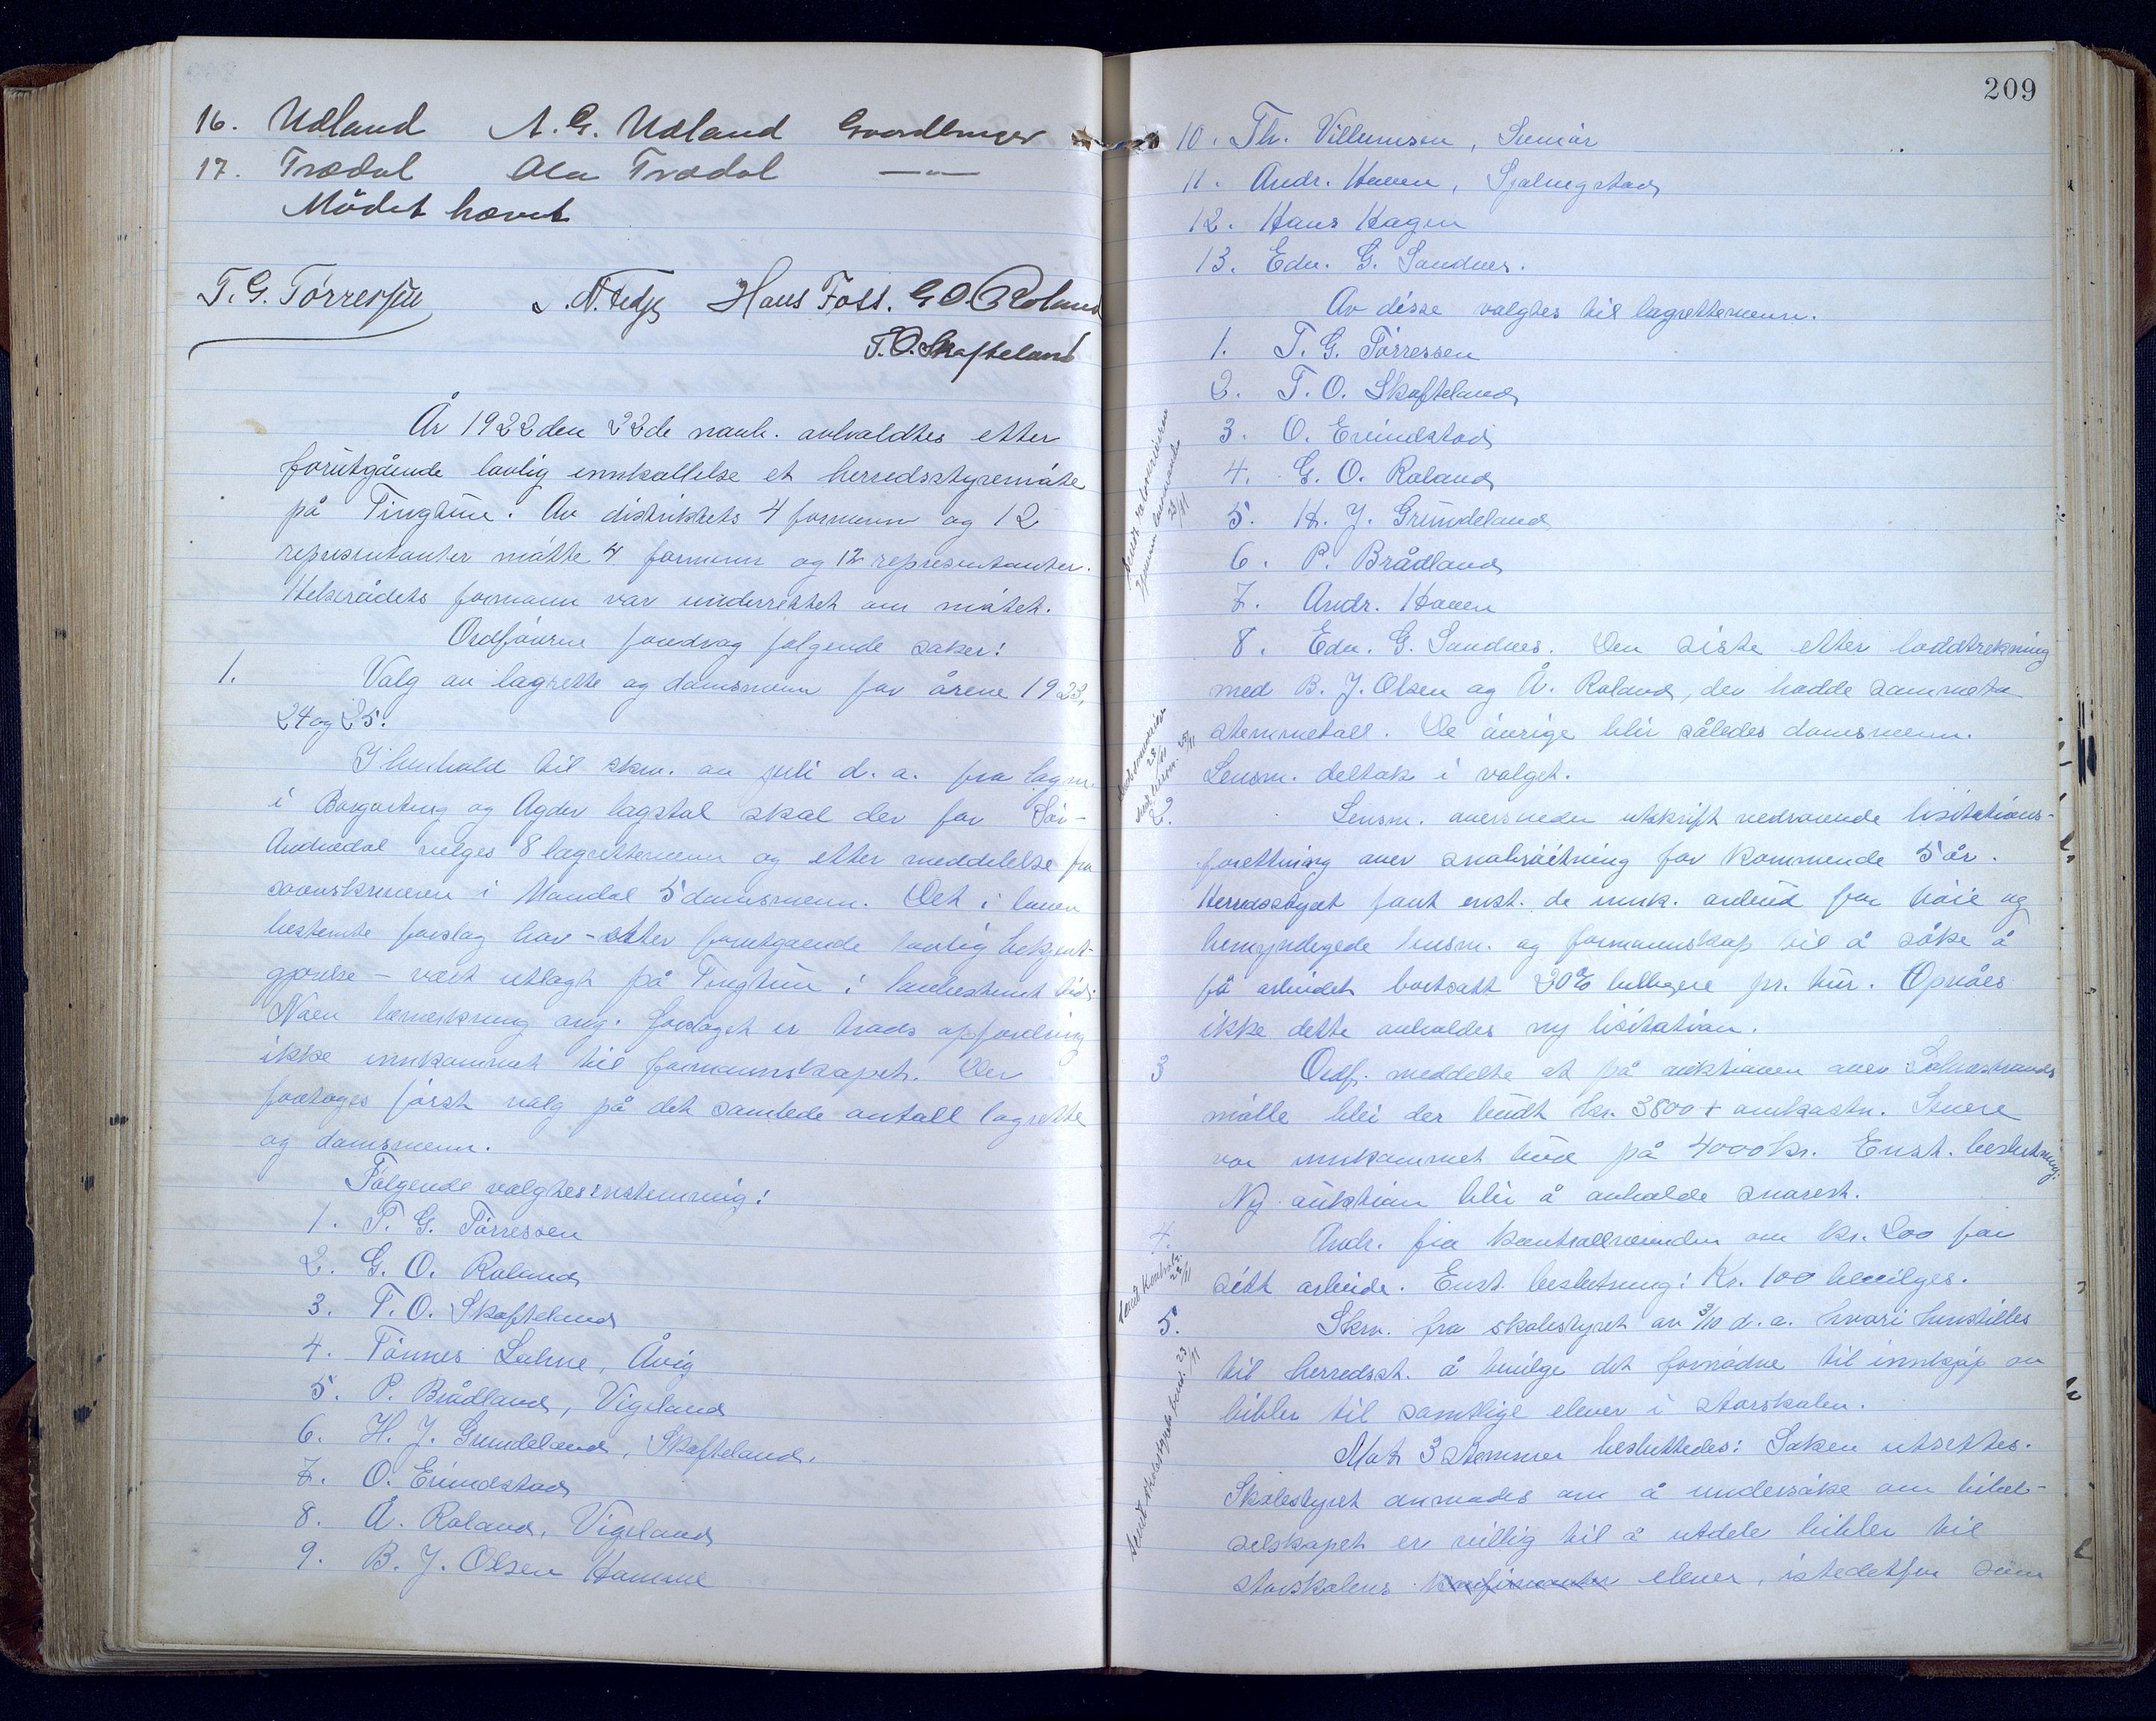 16. Udland A. G. Udland Gaardbruger
17. Trædal Ola Trædal —"—
Mödet hævet
T. G. Tórressen Hans Foss. G. O. Roland
T. O. Skofteland
År 1922 den 22de novb. avholdtes etter
forutgående lovlig innkallelse et herredsstyremöte
på Tingtun. Av distriktets 4 formenn og 12
representanter mötte 4 formenn og 12 representanter.
Helserådets formann var underrettet om mötet.
Ordföreren foredrog fölgende saker:
1. Valg av lagrette og domsmenn for årene 1923,
24 og 25.
I henhold til skriv. av juli d. a. fra lagm.
i Borgarting og Agder lagstol skal der for Sör-
Audnedal velges 8 lagrettemenn og etter meddelelse fra
sorenskriveren i Mandal 5 domsmenn. Det i loven
bestemte forslag har - etter forutgående lovlig bekjent-
gjörelse - vært utlagt på Tingtun i lovbestemt tid.
Noen bemerkning ang. forslaget er trods opfordring
ikke innkommet til formannskapet. Der
foretoges först valg på det samlede antall lagrette
og domsmenn.
Fölgende valgtes enstemmig:
1. T. G. Törressen
2. G. O. Roland
3. T. O. Skofteland
4. Tönnes Lohne, Åvig
5. P. Brådland, Vigeland
6. H. J. Grundeland, Skofteland.
7. O. Eruindstad
8. Å. Roland, Vigeland
9. B. J. Olsen Homme
209
10. Th. Villumsen, Snuiar
11. Andr. Hauen, Spalingstad
12. Hans Hagen
13. Edv. G. Sandnes.
Av disse valgtes til lagrettemenn.
1. T. G. Törressen
2. T. O. Skofteland
3. O. Eruindstad
4. G. O. Roland
5. H. J. Grundeland
6. P. Brådland
7. Andr. Hauen
8. Edv. G. Sandnes. Den siste etter loddtrekning
med B. J. Olsen og Å. Roland, der hadde samme
stemmetall. De övrige blir således domsmenn.
Lensm. deltok i valget.
2. Lensm. oversender utskrift vedrörende lisitations-
forettning over snebröitning for kommende 5 år.
Herredsstyret fant enst. de innk. anbud for höie og
bemyndigede lensm. og formannskap til å söke å
få arbeidet bortsatt 20% billigere pr. tur. Opnåes
ikke dette avholdes ny lisitation.
3 Ordf. meddelte at på auktionen over
mölle blei der budt kr. 3800 + omkostn. Senere
var innkommet bud på 4000 kr. Enst. beslutning:
Ny auktion blir å avholde snarest.
4. Andr. fra kontrollnemnden om kr. 200 for
sitt arbeide. Enst. beslutning: Kr. 100 bevilges.
5. Skriv. fra skolestyret av 3/10 d. a. hvori henstilles
til herredsst. å bevilge det fornödne til innkjöp av
bibler til samtlige elever i storskolen.
Mot 3 stemmer besluttedes: Saken utsettes.
Skolestyret anmodes om å undersöke om bibel-
selskapet er villig til å utdele bibler til
storskolens konfirmanter elever, istedetfor som
Sendt skolestyrets form. 23/11